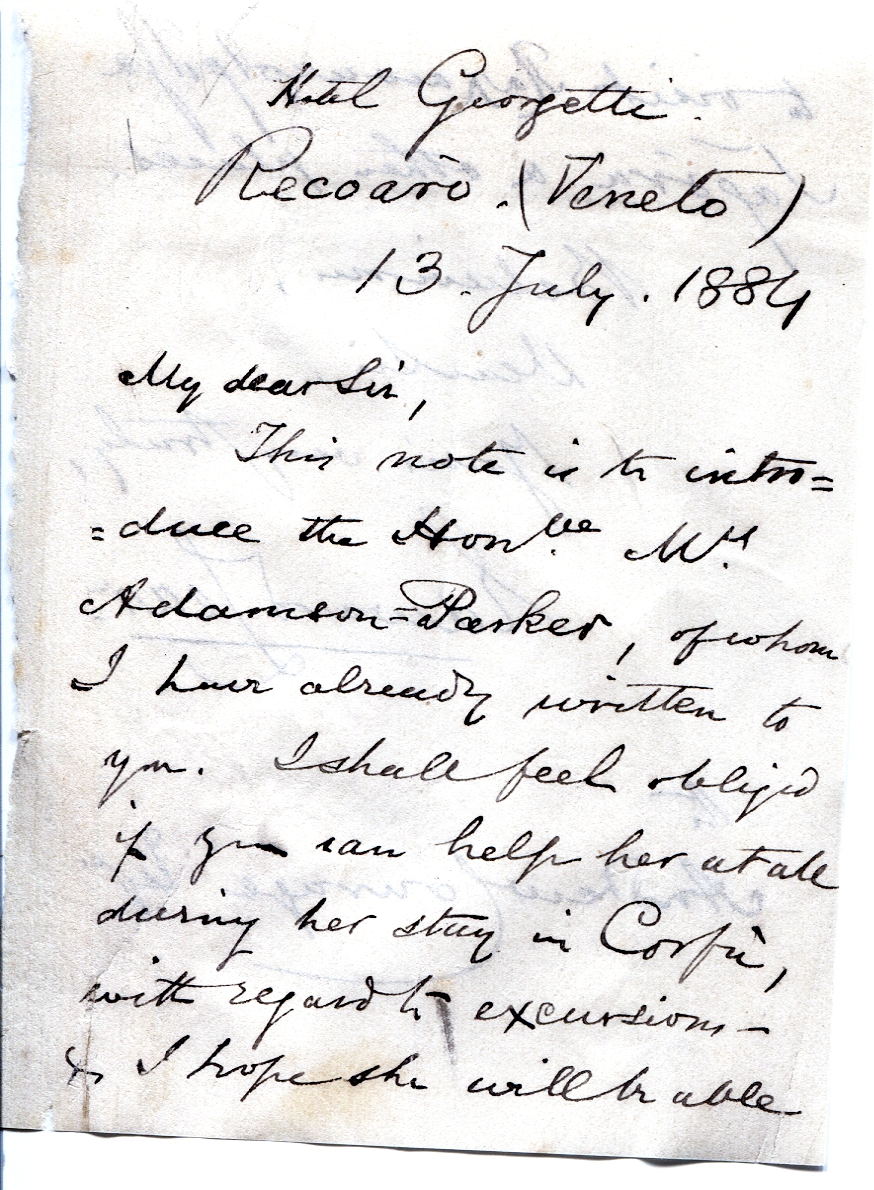 Hotel Giorgetti.
Recoaro. (Veneto)
13. July. 1884
My dear Sir,
This note is to intro=
=duce the Honble Mrs
Adamson=Parker, of whom
I have already written to
you. I shall feel obliged
if you can help her at all
during her stay in Corfù,
with regard to excursions –
& I hope she will be able